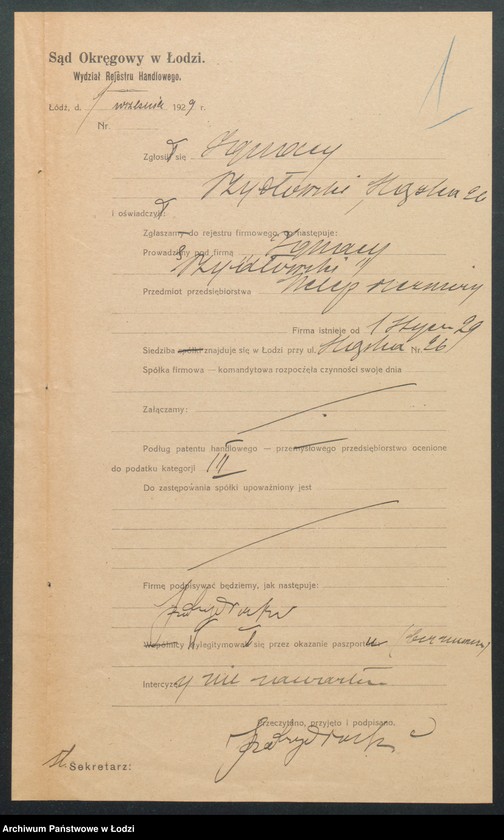 Sąd Okręgowy w Łodzi.
Wydział Rejestru Handlowego.
1
Łódź, d. 7 wrzesnia 1929 r.
Nr.
Zgłosił się Ignacy
Szydłowski 26
i oświadczył:
Zgłaszam do rejestru firmowego, co następuje:
Prowadzimy pod firmą Ignacy
Szydłowski
Przedmiot przedsiębiorstwa sklep
Firma istnieje od 1 Stycz 29
Siedziba spółki znajduje się w Łodzi przy ul. Nr. 26
Spółka firmowa — komandytowa rozpoczęła czynności swoje dnia
Załączamy:
Podług patentu handlowego — przemysłowego przedsiębiorstwo ocenione
do podatku kategorji III
Do zastępowania spółki upoważniony jest
Firmę podpisywać będziemy, jak następuje:
Wspólnicy wylegitymowali się przez okazanie paszportu
Intercyzy nie zawarłem
Przeczytano, przyjęto i podpisano.
Sekretarz:
Archiwum Państwowe w Łodzi